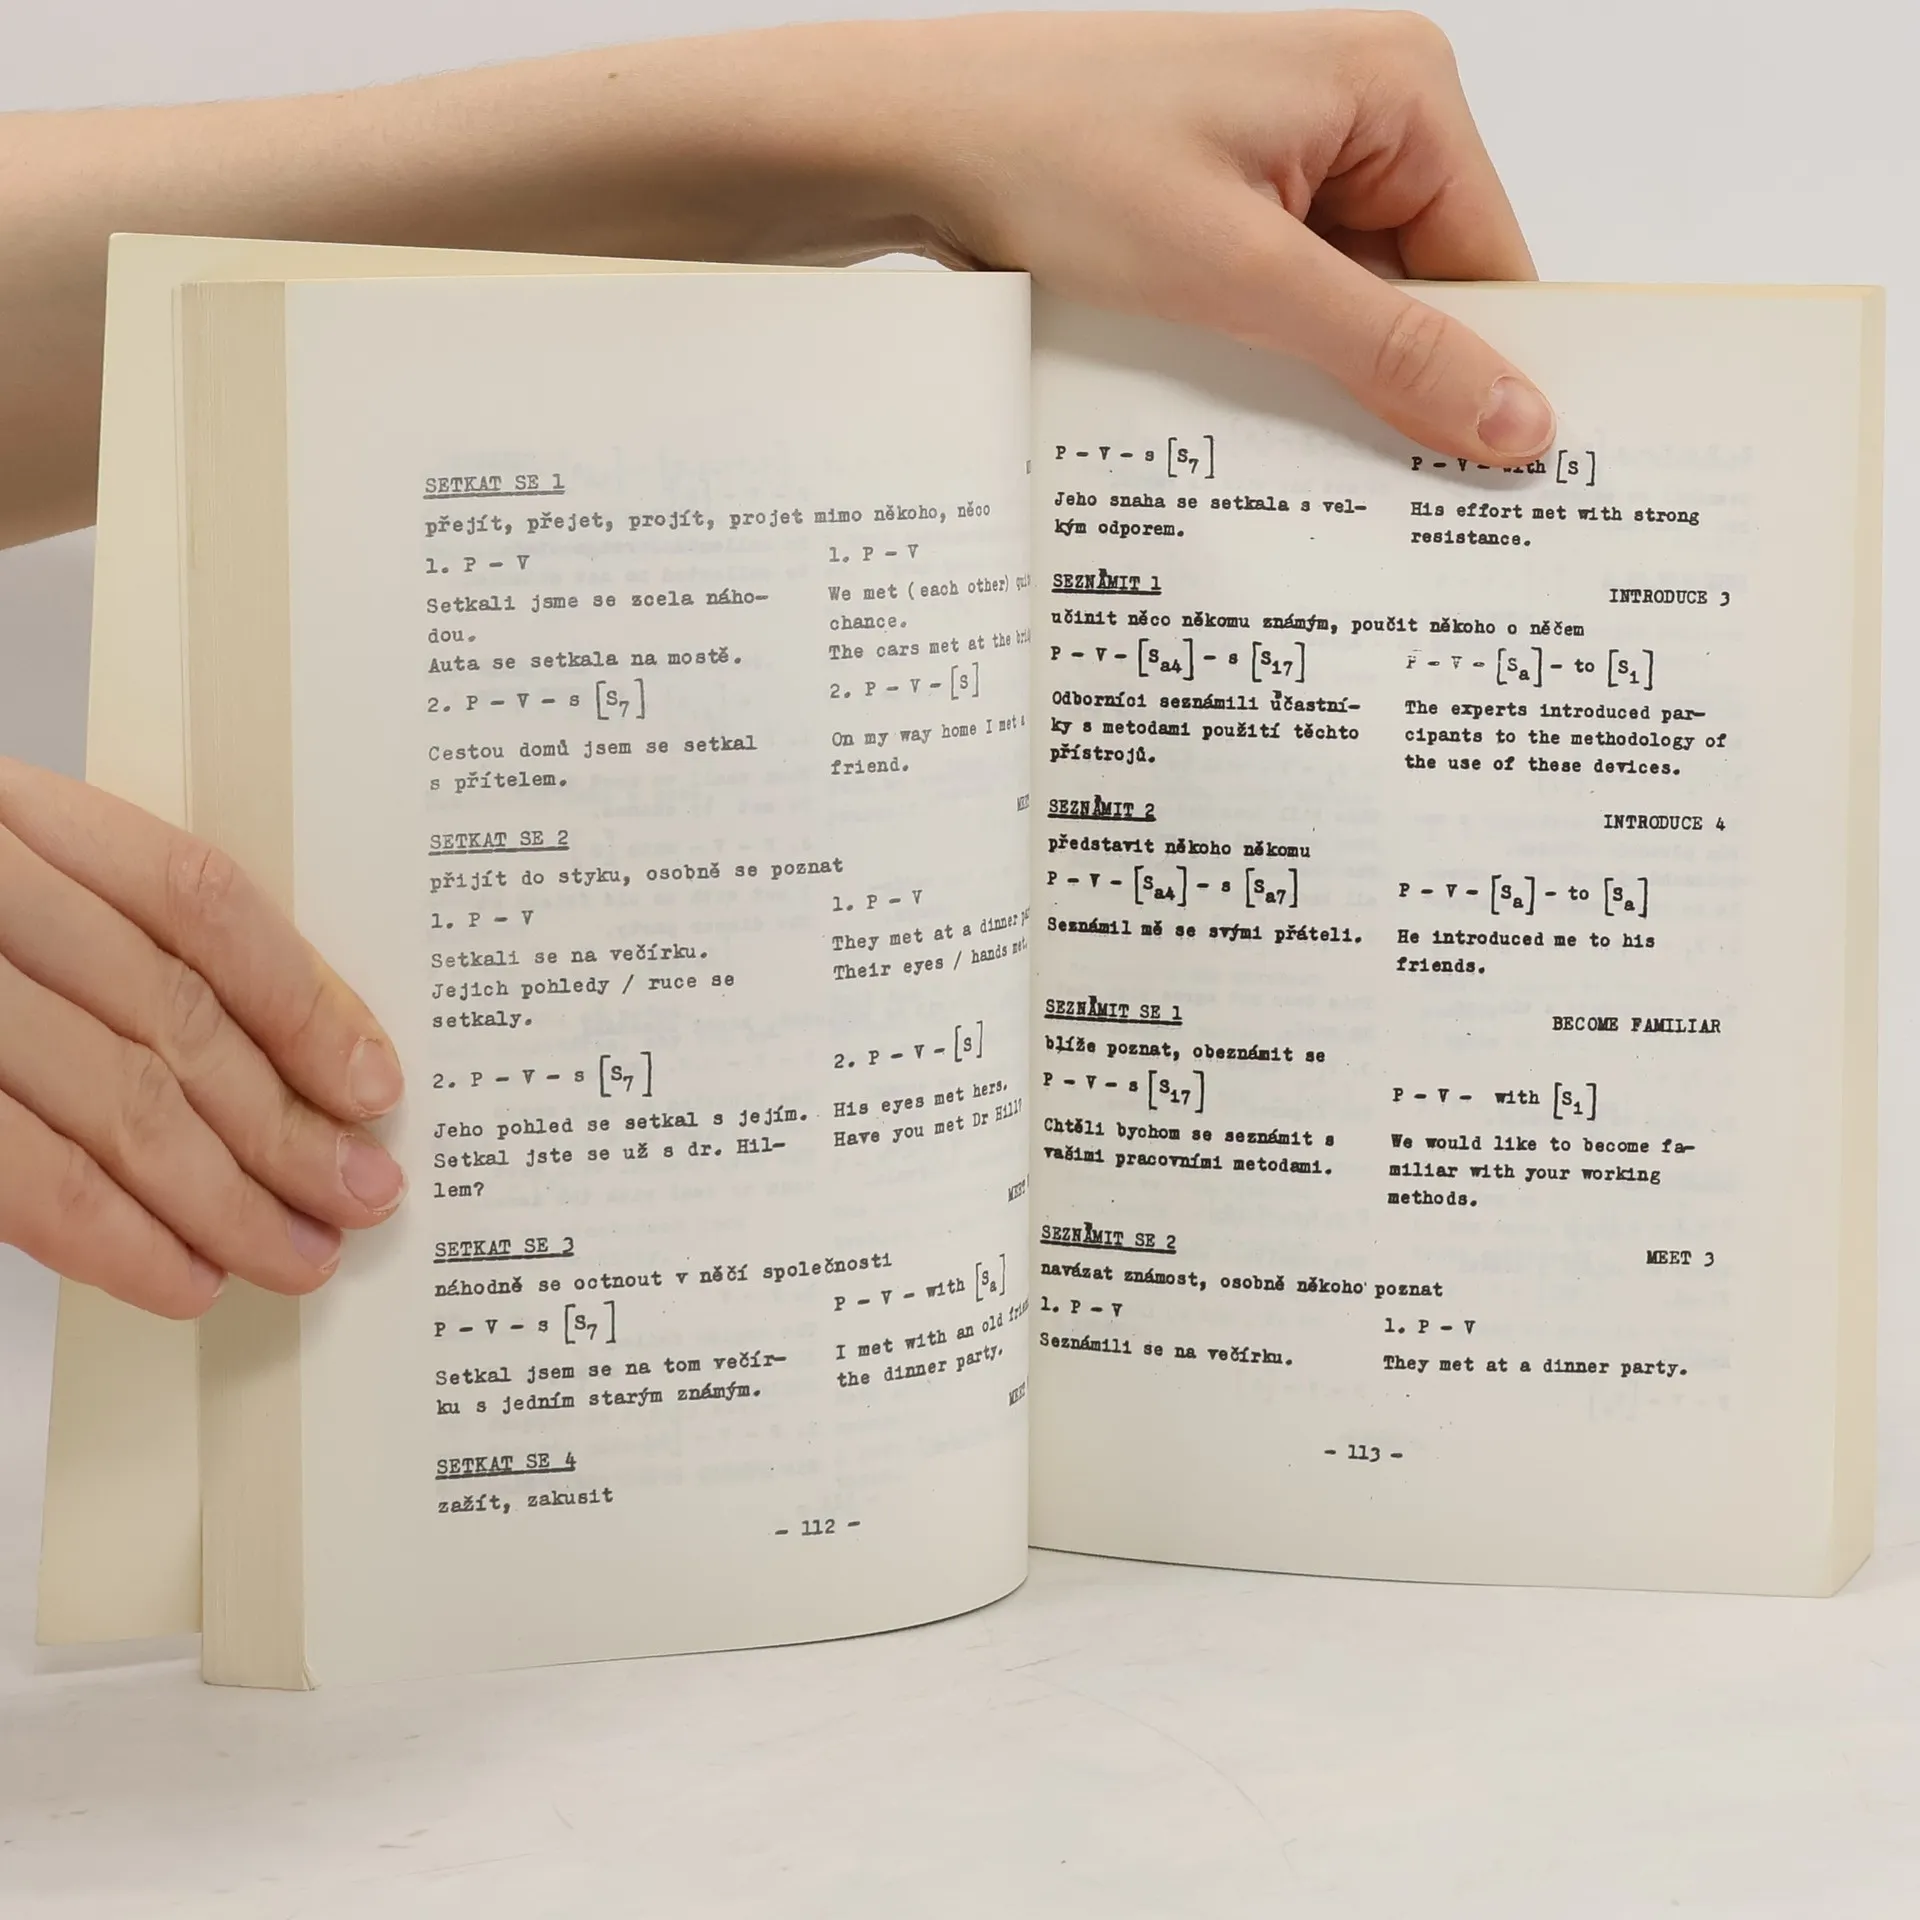 SETKAT SE 1
přejít, přejet, projít, projet mimo někoho, něco
1. P - V
Setkali jsme se zcela náho-
dou.
Auta se setkala na mostě.
2. P - V - s [S7]
Cestou domů jsem se setkal
s přítelem.
1. P - V
We met (each other)
chance.
The cars met at the
2. P - V - [S]
On my way home I met a
friend.
SETKAT SE 2
přijít do styku, osobně se poznat
1. P - V
Setkali se na večírku.
Jejich pohledy / ruce se
setkaly.
2. P - V - s [S7]
Jeho pohled se setkal s jejím.
Setkal jste se už s dr. Hil-
lem?
1. P - V
They met at a dinner
Their eyes / hands met.
2. P - V - [S]
His eyes met hers.
Have you met Dr Hill?
SETKAT SE 3
náhodně se octnout v něčí společnosti
P - V - s [S7]
Setkal jsem se na tom večír-
ku s jedním starým známým.
P - V - with [Sa]
I met with an old
the dinner party.
SETKAT SE 4
zažít, zakusit
- 112 -
P - V - s [S7]
Jeho snaha se setkala s vel-
kým odporem.
P - V - with [S]
His effort met with strong
resistance.
SEZNÁMIT 1
INTRODUCE 3
učinit něco někomu známým, poučit někoho o něčem
P - V - [Sa4] - s [S17]
Odborníci seznámili účastní-
ky s metodami použití těchto
přístrojů.
P - V - [Sa] - to [S1]
The experts introduced par-
cipants to the methodology of
the use of these devices.
SEZNÁMIT 2
INTRODUCE 4
představit někoho někomu
P - V - [Sa4] - s [Sa7]
Seznámil mě se svými přáteli.
P - V - [Sa] - to [Sa]
He introduced me to his
friends.
SEZNÁMIT SE 1
BECOME FAMILIAR
blíže poznat, obeznámit se
P - V - s [S17]
Chtěli bychom se seznámit s
vašimi pracovními metodami.
P - V - with [S1]
We would like to become fa-
miliar with your working
methods.
SEZNÁMIT SE 2
MEET 3
navázat známost, osobně někoho poznat
1. P - V
Seznámili se na večírku.
1. P - V
They met at a dinner party.
- 113 -